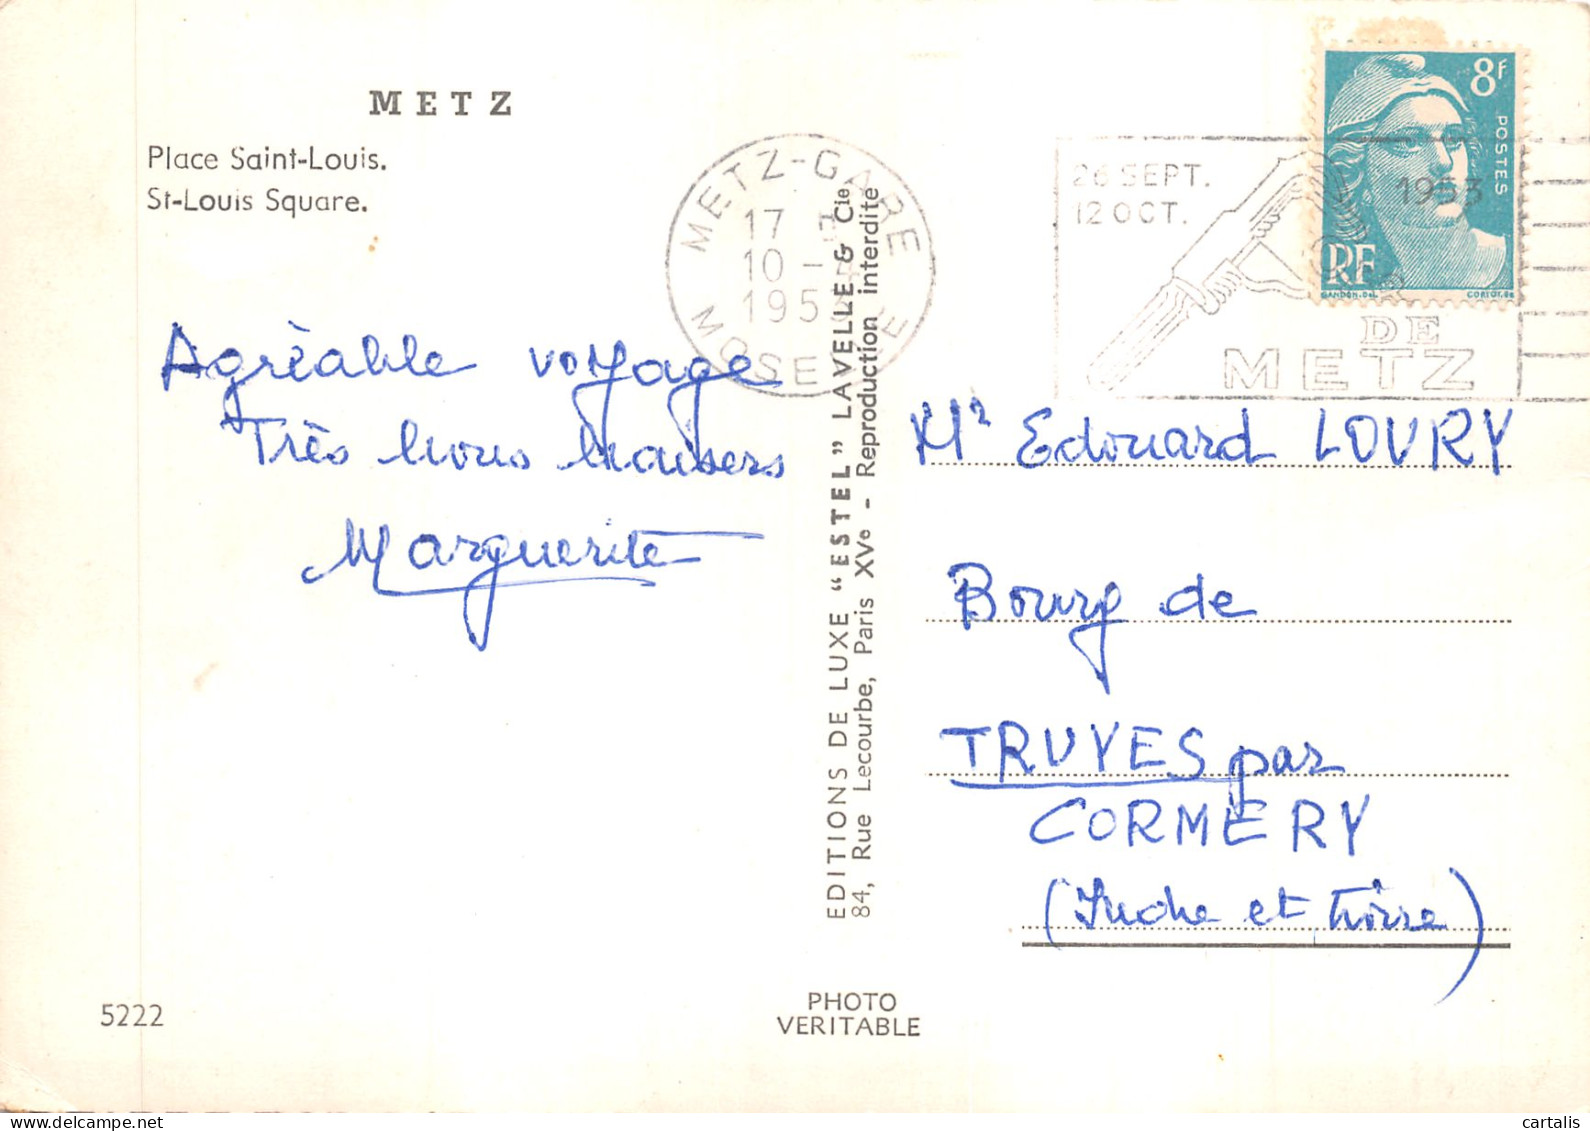 METZ
Place Saint-Louis.
St-Louis Square.
METZ-GARE
17
10 -
195
MOSELLE
26 SEPT.
12 OCT.
1953
DE
METZ
8F
POSTES
RF
GANDON.DEL.
CORTOT.SC
Agréable voyage
Très bons baisers
Marguerite
EDITIONS DE LUXE "ESTEL" LAVELLE & Cie
84, Rue Lecourbe, Paris XVe - Reproduction interdite
Mr Edouard LOURY
Bourg de
TRUYES par
CORMERY
(Indre et Loire)
5222
PHOTO
VERITABLE
delcampe.net
cartalis